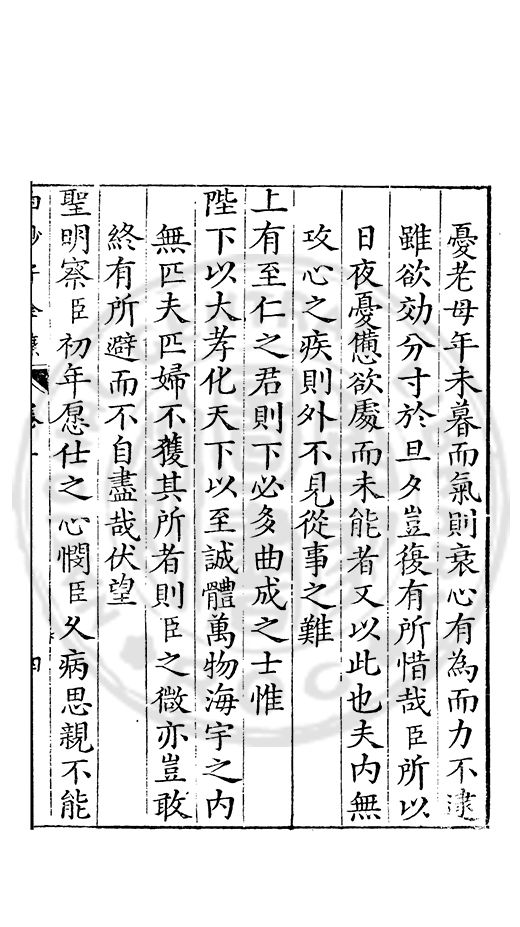 憂老母年未暮而氣則衰心有為而力不逮
雖欲効分寸於旦夕豈復有所惜哉臣所以
日夜憂憊欲處而未能者又以此也夫內無
攻心之疾則外不見從事之難
上有至仁之君則下必多曲成之士惟
陛下以大孝化天下以至誠體萬物海宇之內
無匹夫匹婦不獲其所者則臣之微亦豈敢
終有所避而不自盡哉伏望
聖明察臣初年愿仕之心憫臣久病思親不能